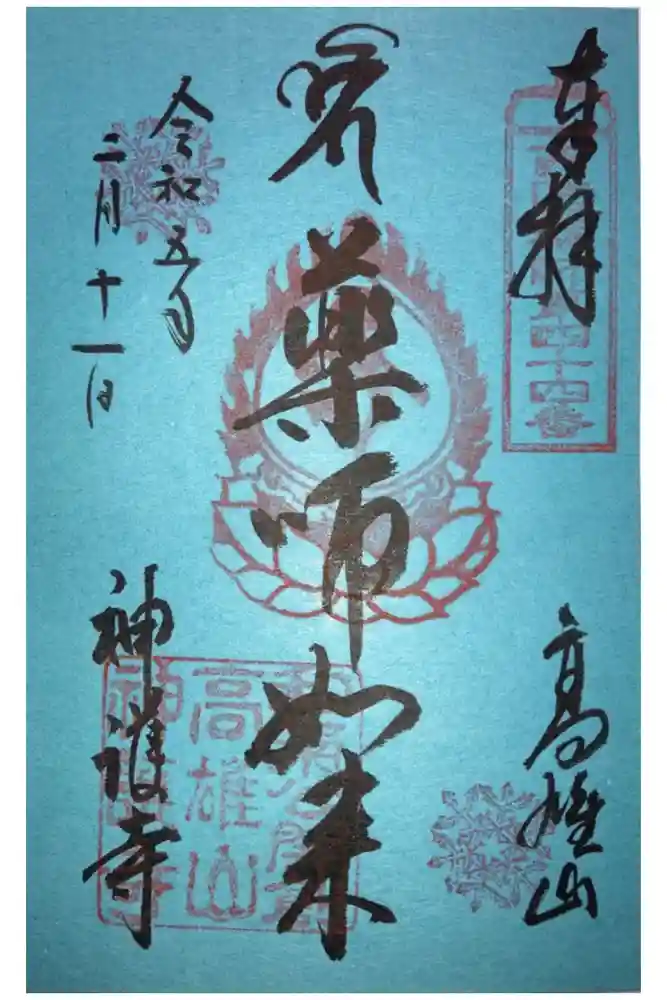 奉拝
高雄山
薬師如来
令和五年
二月十一日
神護寺
高雄山